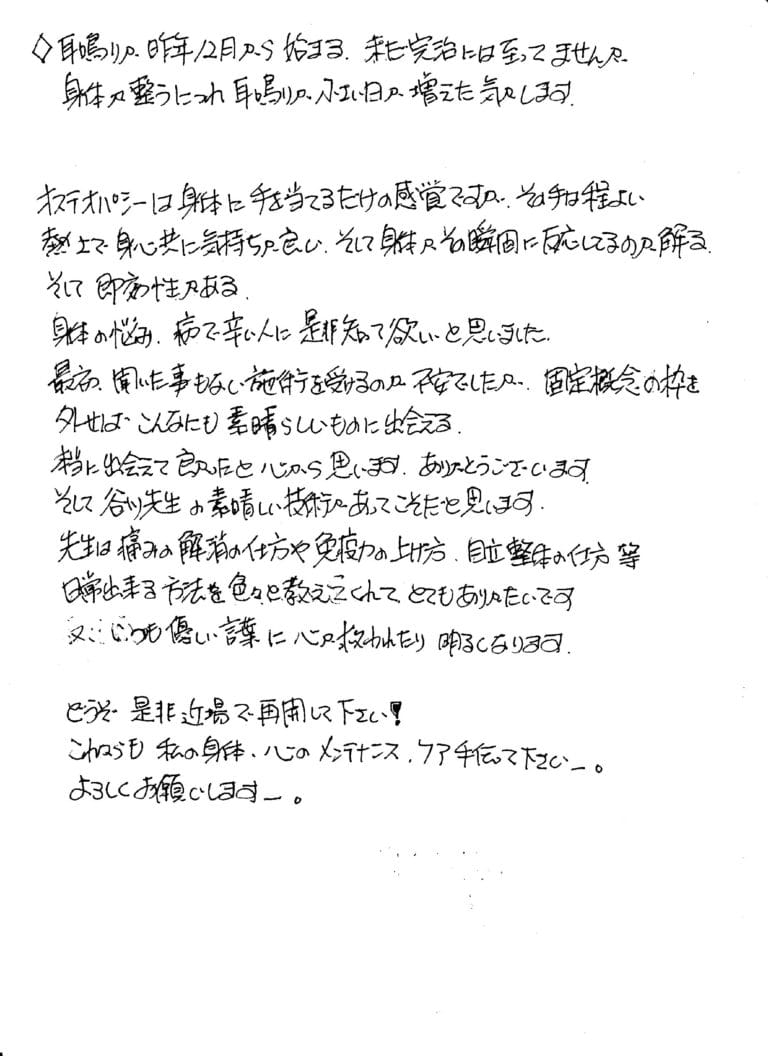 ◇耳鳴りが昨年12月から始まる. 未だ完治には至ってませんが
身体が整うにつれ耳鳴りが小さい日が増えた気がします.
オステオパシーは身体に手を当てるだけの感覚ですが、その手は程よい
熱さで身心共に気持ちが良い. そして身体がその瞬間に反応してるのが解る.
そして即効性がある.
身体の悩み、病で辛い人に是非知って欲しいと思いました.
最初、聞いた事もない施術を受けるのが不安でしたが、固定概念の枠を
外せば こんなにも素晴らしいものに出会える.
本当に出会えて良かったと心から思います. ありがとうございます
そして谷川先生の素晴しい技術があってこそだと思います.
先生は痛みの解消の仕方や免疫力の上げ方、自立整体の仕方等
日常出来る方法を色々と教えてくれて、とてもありがたいです
又、いつも優しい言葉に心が救われたり明るくなります.
どうぞ是非近場で再開して下さい!
これからも私の身体、心のメンテナンス、ケア手伝って下さいー。
よろしくお願いしますー。